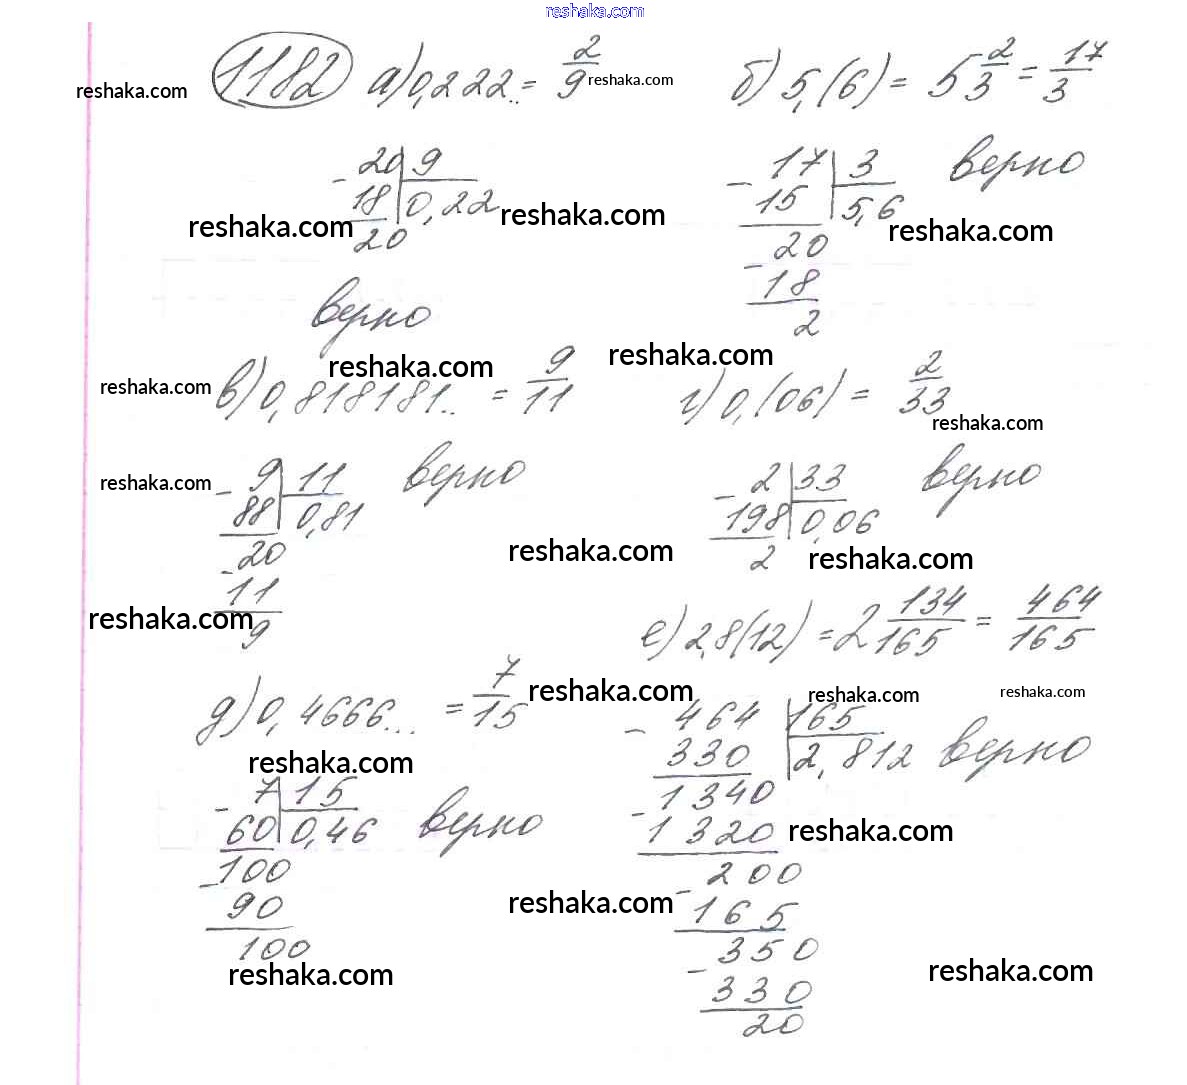 reshaka.com
1182 а) 0,222.. = 2/9 reshaka.com б) 5,(6) = 5 2/3 = 17/3
reshaka.com
- 20 | 9
18 | 0,22
20
reshaka.com reshaka.com
верно
- 17 | 3 верно
15 | 5,6
- 20
18
2
reshaka.com
reshaka.com reshaka.com
reshaka.com в) 0,818181.. = 9/11 г) 0,(06) = 2/33
reshaka.com
reshaka.com
- 9 | 11 верно
88 | 0,81
- 20
11
9
reshaka.com
- 2 | 33 верно
198 | 0,06
2
reshaka.com reshaka.com
е) 2,8(12) = 2 134/165 = 464/165
д) 0,4666... = 7/15 reshaka.com reshaka.com reshaka.com
reshaka.com
- 7 | 15 верно
60 | 0,46
- 100
90
100
reshaka.com
- 464 | 165 верно
330 | 2,812
- 1340
1320
- 200
165
- 350
330
20
reshaka.com
reshaka.com
reshaka.com